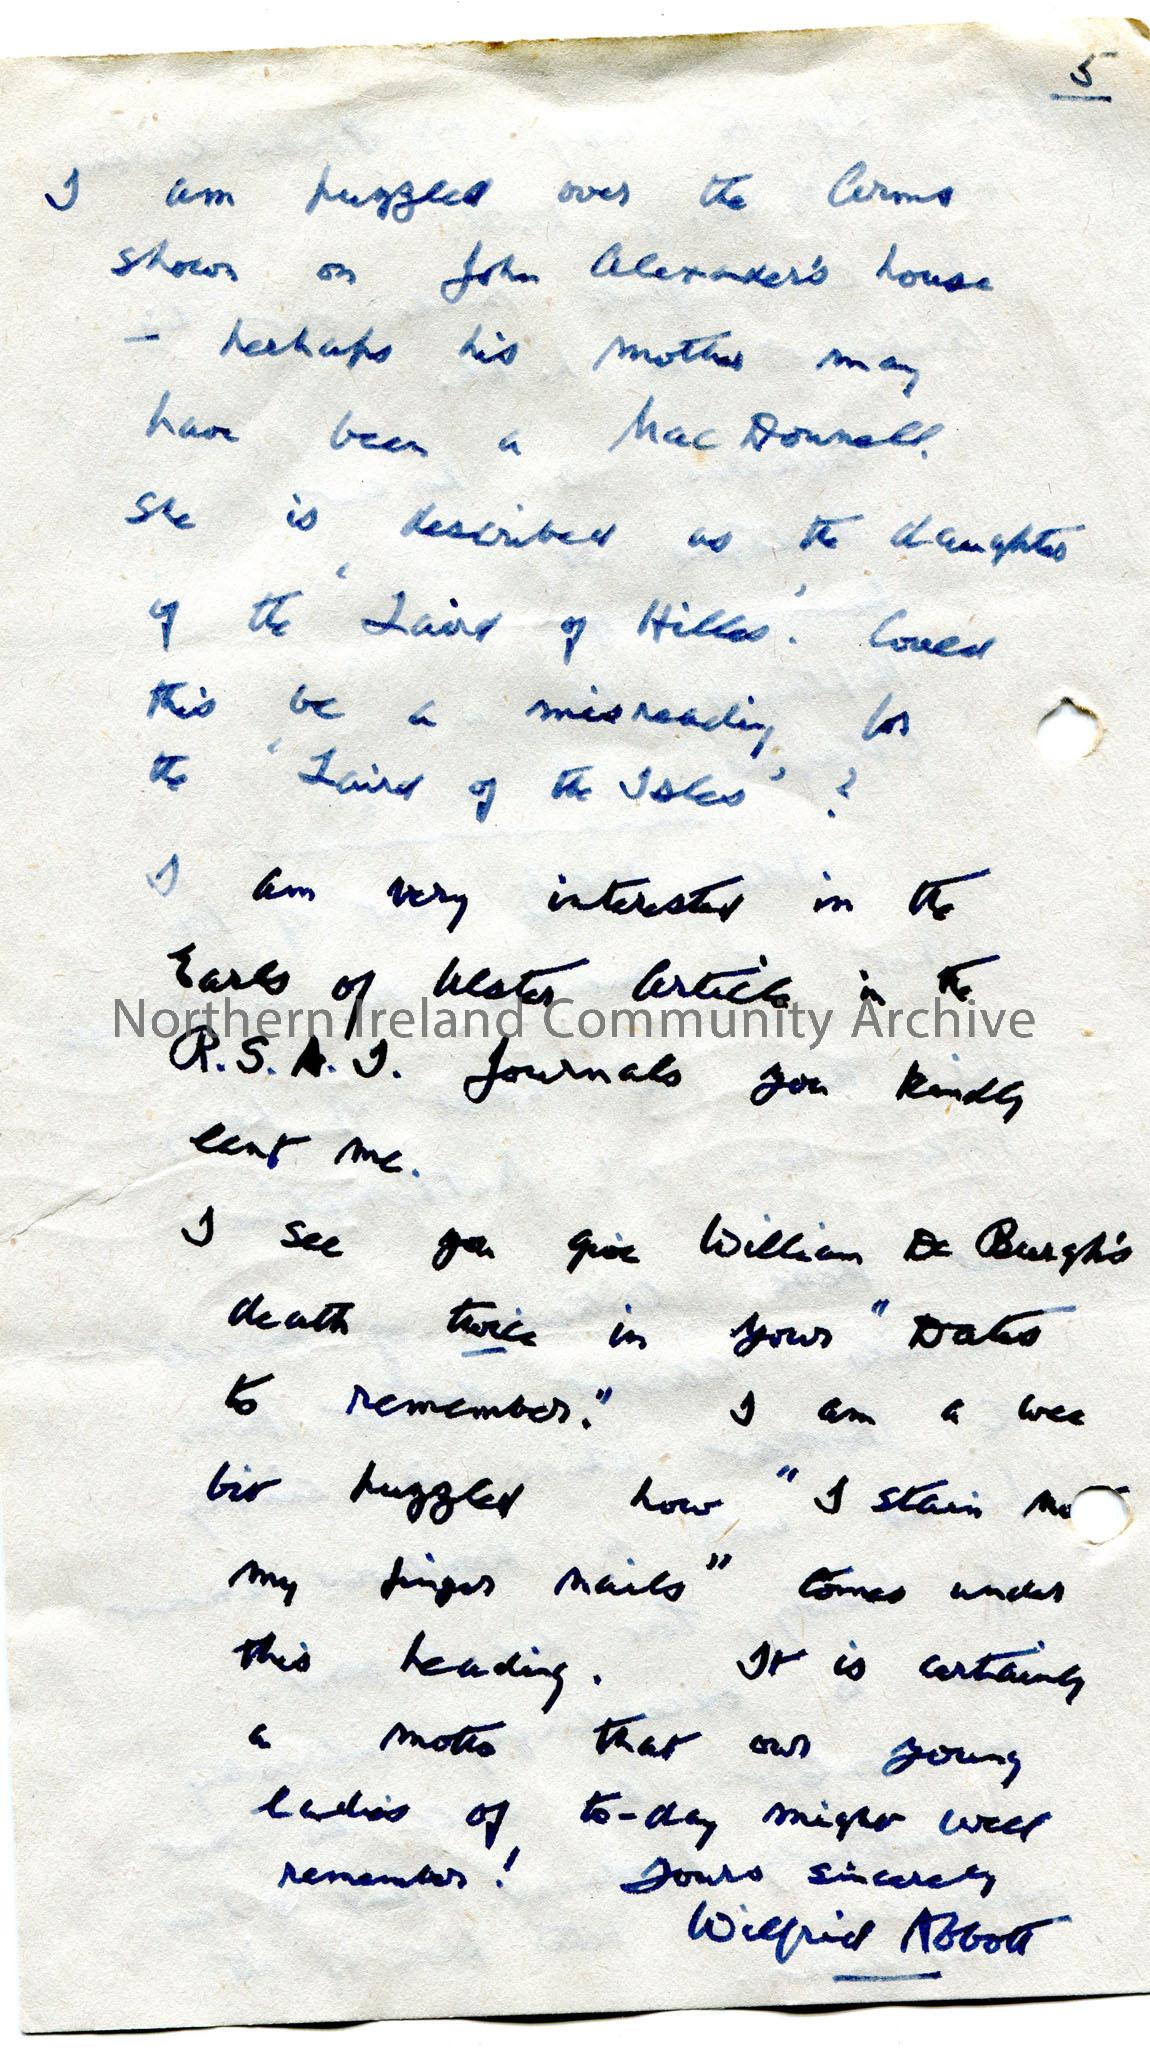 5
I am puzzled over the Arms
shown on John Alexander's house
- perhaps his mother may
have been a MacDonnell.
She is described as the daughter
of the 'Laird of Hilles'. Could
this be a misreading for
the 'Laird of the Isles'?
I am very interested in the
Earls of Ulster Article in the
Northern Ireland Community Archive
R.S.A.I. Journals you kindly
lent me.
I see you give William De Burgh's
death twice in your "Dates
to remember." I am a wee
bit puzzled how "I stain not
my finger nails" comes under
this heading. It is certainly
a motto that our young
ladies of to-day might well
remember! Yours sincerely
Wilfrid Abbott